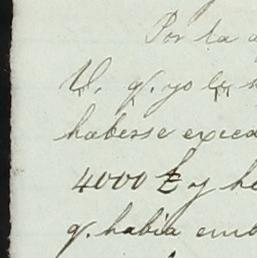 Por la
V. q. yo le
haberse exced
4000 £ y he
q. habia em